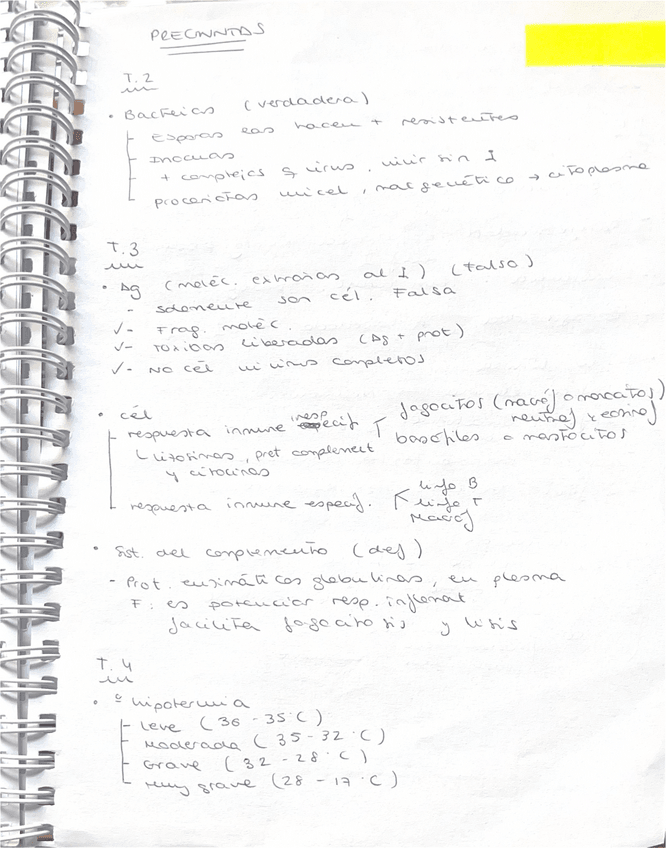 PREGUNTAS
T.2
• Bacterias (verdadera)
- Esporas las hacen + resistentes
- Inocuas
- + complejas q virus, vivir sin I
- procariotas unicel, mat genético → citoplasma
T.3
• Ag (moléc. extrañas al I) (Falso)
- solamente son cél. Falsa
✓- Frag. moléc.
✓- Toxinas liberadas (Ag + prot)
✓- No cél ni virus completos
• cél
- respuesta inmune inesp
fagocitos (macróf o monocitos)
neutróf y eosinóf
basófilos o mastocitos
prot complement
y citocinas
- respuesta inmune específ.
linfo B
linfo T
Macróf
• Sist. del complemento (def)
- Prot. enzimáticas globulinas, en plasma
F: es potenciar resp. inflamat
facilita fagocitosis y lisis
T.4
• º hipotermia
- Leve (36 - 35 ºC)
- Moderada (35 - 32 ºC)
- Grave (32 - 28 ºC)
- Muy grave (28 - 17 ºC)